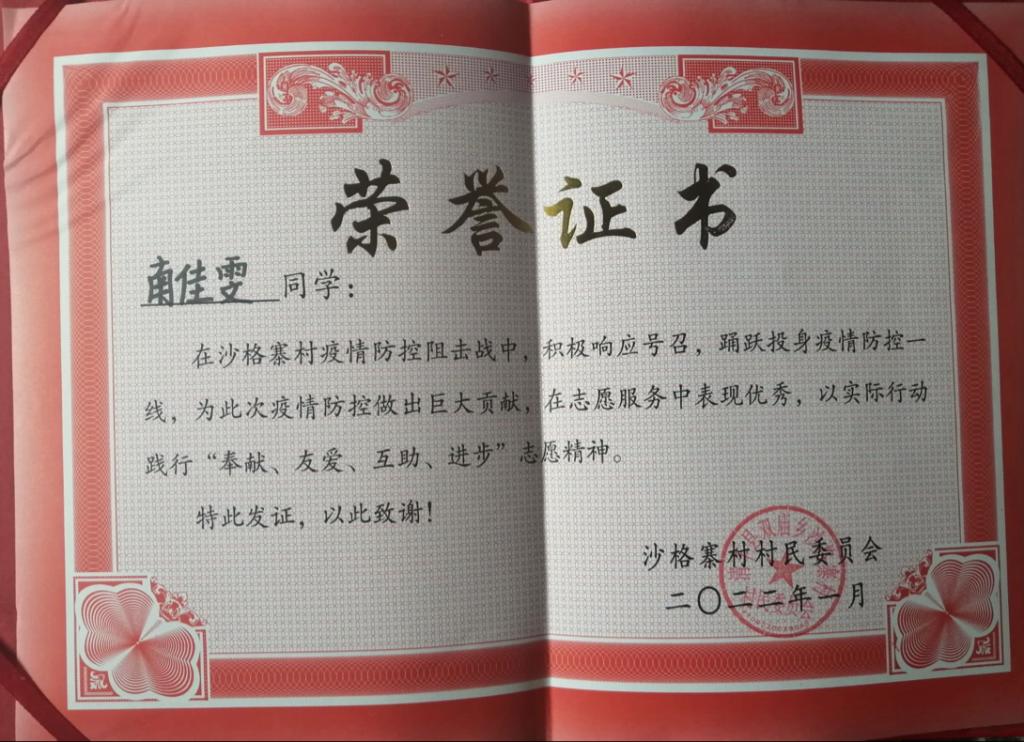 荣誉证书
佳雯 同学：
在沙格寨村疫情防控阻击战中，积极响应号召，踊跃投身疫情防控一
线，为此次疫情防控做出巨大贡献，在志愿服务中表现优秀，以实际行动
践行“奉献、友爱、互助、进步”志愿精神。
特此发证，以此致谢！
沙格寨村村民委员会
二〇二二年一月
村民委员会